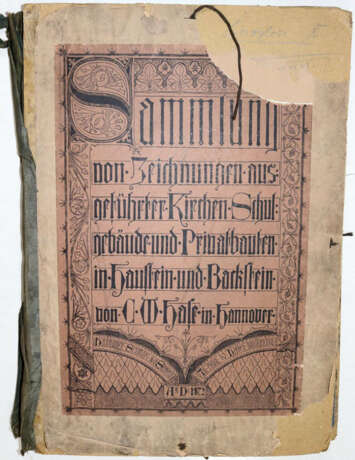 Sammlung
von · Zeichnungen · aus-
geführter · Kirchen · Schul-
gebäude · und · Privatbauten ·
in · Haustein · und · Backstein ·
von · C · W · Hase · in · Hannover ·